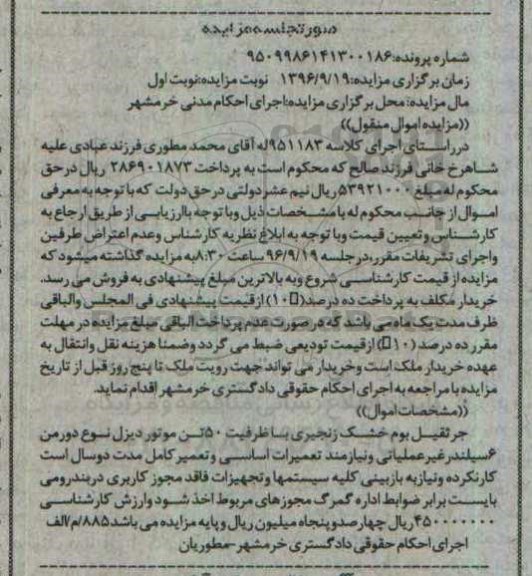 صورتجلسه مزایده
شماره پرونده:۹۵۰۹۹۸۶۱۴۱۳۰۰۱۸۶
زمان برگزاری مزایده:۱۳۹۶/۹/۱۹ نوبت مزایده:نوبت اول
مال مزایده: محل برگزاری مزایده:اجرای احکام مدنی خرمشهر
((مزایده اموال منقول))
درراستای اجرای کلاسه ۹۵۱۱۸۳له آقای محمد مطوری فرزند عبادی علیه
شاهرخ خانی فرزند صالح که محکوم است به پرداخت ۲۸۶۹۰۱۸۷۳ ریال درحق
محکوم له مبلغ ۵۳۹۲۱۰۰۰ریال نیم عشر دولتی درحق دولت که با توجه به معرفی
اموال از جانب محکوم له با مشخصات ذیل وبا توجه باارزیابی از طریق ارجاع به
کارشناس وتعیین قیمت وبا توجه به ابلاغ نظریه کارشناس وعدم اعتراض طرفین
واجرای تشریفات مقرر،درجلسه ۹۶/۹/۱۹ ساعت ۸:۳۰به مزایده گذاشته میشود که
مزایده از قیمت کارشناسی شروع وبه بالاترین مبلغ پیشنهادی به فروش می رسد.
خریدار مکلف به پرداخت ده درصد(۱۰) ازقیمت پیشنهادی فی المجلس والباقی
ظرف مدت یک ماه می باشد که درصورت عدم پرداخت الباقی مبلغ مزایده در مهلت
مقرر ده درصد (۱۰) ازقیمت تودیعی ضبط می گردد وضمنا هزینه نقل وانتقال به
عهده خریدار ملک است وخریدار می تواند جهت رویت ملک تا پنج روز قبل از تاریخ
مزایده با مراجعه به اجرای احکام حقوقی دادگستری خرمشهر اقدام نماید.
((مشخصات اموال))
جرثقیل بوم خشک زنجیری با ظرفیت ۵۰تن موتور دیزل نوع دورمن
۶سیلندر غیرعملیاتی ونیازمند تعمیرات اساسی وتعمیر کامل مدت دوسال است
کارنکرده ونیازبه بازبینی کلیه سیستمها وتجهیزات فاقد مجوز کاربری دربندرومی
بایست برابر ضوابط اداره گمرگ مجوزهای مربوط اخذ شود وارزش کارشناسی
۴۵۰۰۰۰۰۰۰ریال چهارصدوپنجاه میلیون ریال وپایه مزایده می باشد۸۸۵/م/الف
اجرای احکام حقوقی دادگستری خرمشهر-مطوریان